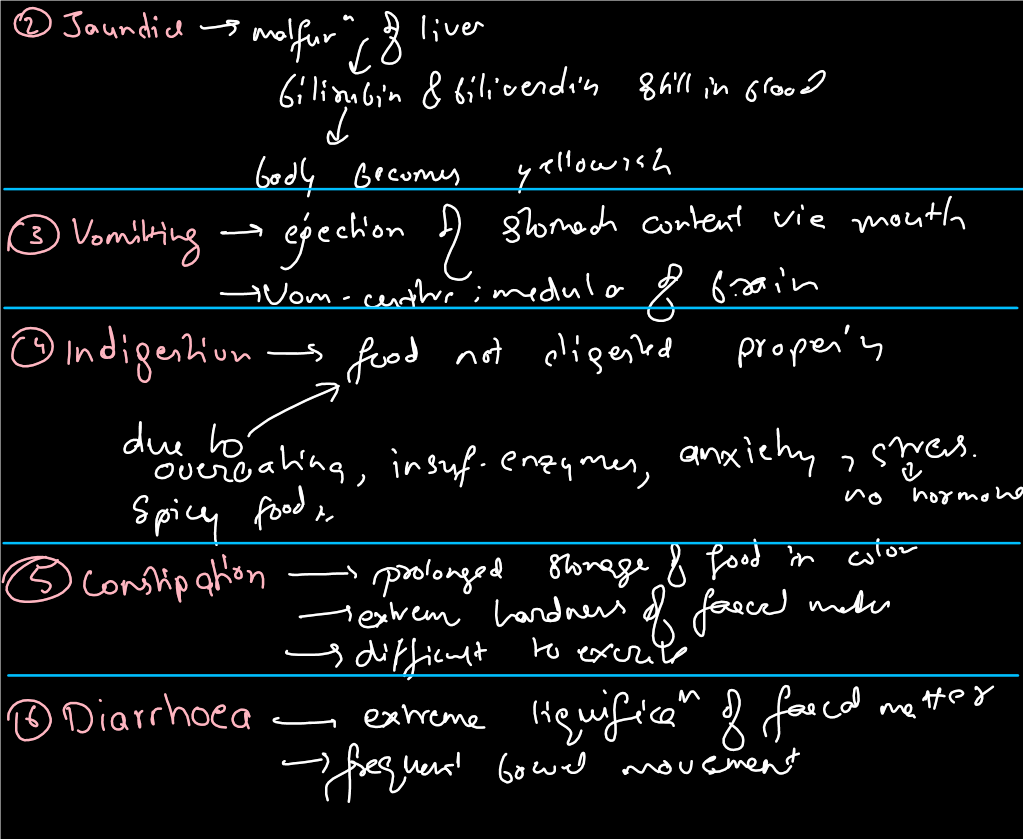 ② Jaundice → malfunⁿ of liver
bilirubin & biliverdin still in blood
body becomes yellowish
③ Vomiting → ejection of stomach content via mouth
→ Vom-centre : medula of brain
④ Indigestion → food not digested properly
due to
overeating, insuf. enzymes, anxiety, stress.
spicy food
no hormone
⑤ Constipation → prolonged storage of food in colon
→ extrem hardness of faecal matter
→ difficult to excrete
⑥ Diarrhoea — extreme liquificaⁿ of faecal matter
→ frequent bowel movement